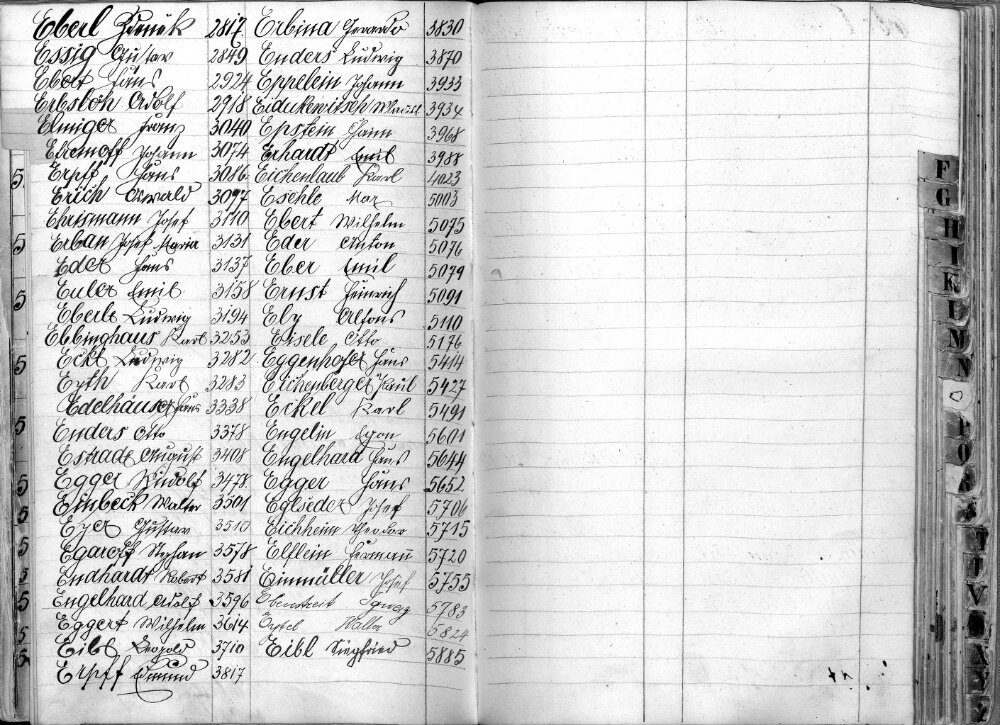 Eberl Zdenek 2817 Erbina Gerardo 3830
Essig Gustav 2849 Enders Ludwig 3870
Ebert Hans 2924 Eppelein Johann 3933
Erbslöh Adolf 2918 Eidukewitsch 3934
Elmiger Franz 3040 Epstein 3968
Johann 3074 Erhardt Emil 3988
Erpff Hans 3086 Eichenlaub Karl 4023
Erich Oswald 3097 Eschle Max 5003
Ehrismann Josef 3110 Ebert Wilhelm 5075
Erban Josef Maria 3131 Eder Anton 5076
Eder Hans 3137 Eber Emil 5079
Euler Emil 3158 Ernst Heinrich 5091
Eberle Ludwig 3194 Ely Alfons 5110
Ebbinghaus Karl 3253 Eisele Otto 5176
Eckl Ludwig 3282 Eggenhofer Hans 5414
Eyth Karl 3283 Eichenberger Paul 5427
Edelhäuser Hans 3338 Eckel Karl 5491
Enders Otto 3378 Engelin Egon 5601
Estrade August 3408 Engelhard Hans 5644
Egger Rudolf 3478 Egger Hans 5652
Einbeck Walter 3501 Eglseder Josef 5706
Eyer Gustav 3510 Eichheim Theodor 5715
Egaroff Stephan 3578 Elflein Hermann 5720
Endhardt Robert 3581 Einmüller Josef 5755
Engelhard Adolf 3596 Ebenstreit Ignaz 5783
Eggert Wilhelm 3614 5824
Eibl Leopold 3710 Eibl Siegfried 5885
Erpff Edmund 3817
F
G
H
I
K
L
M
N
O
P
T
V
X
Y